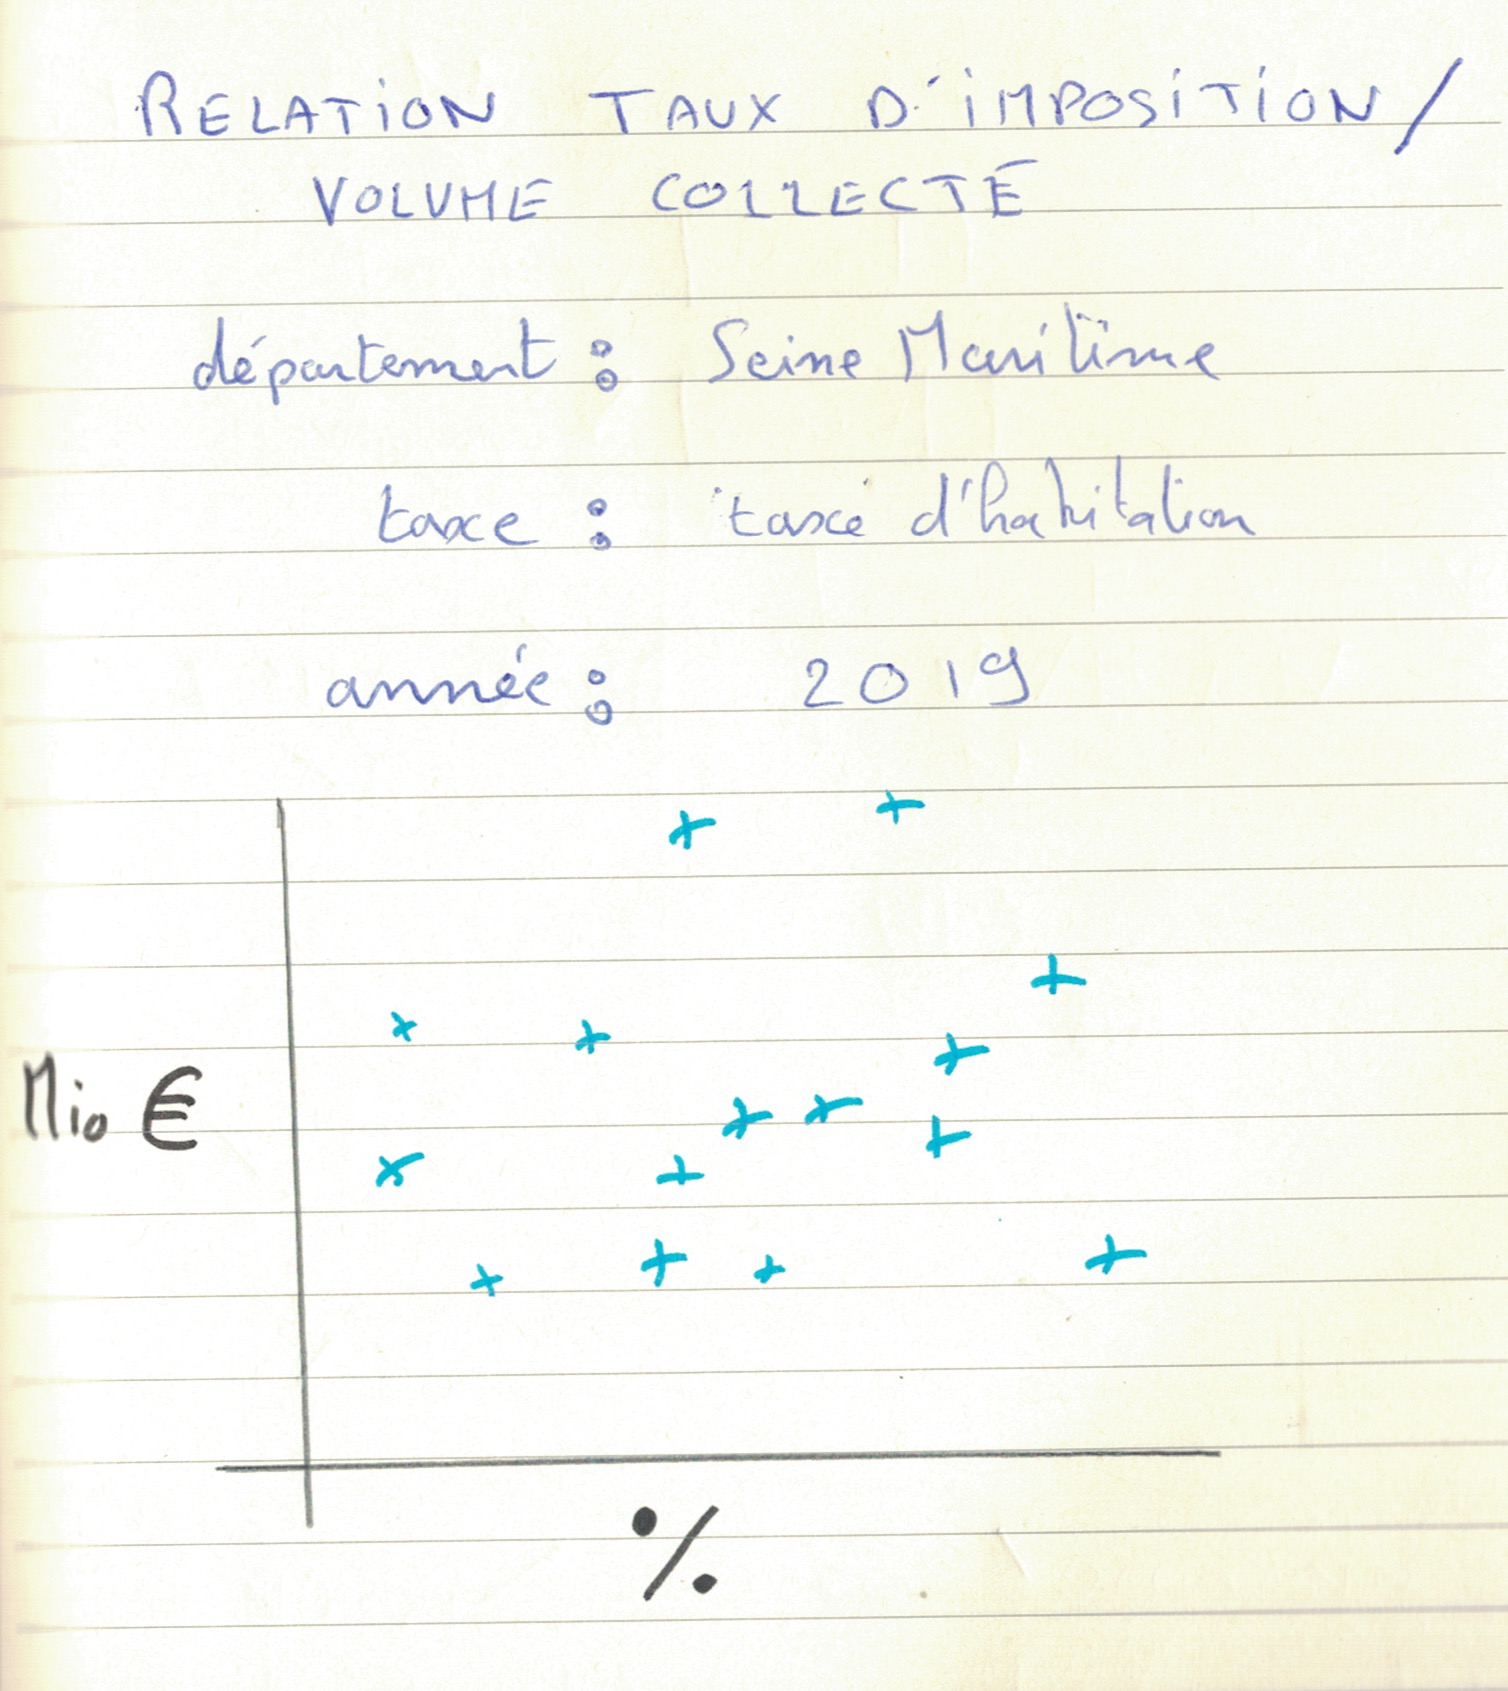 RELATION TAUX D'IMPOSITION/
VOLUME COLLECTÉ
département : Seine Maritime
taxe : taxe d'habitation
année : 2019
Mio €
%